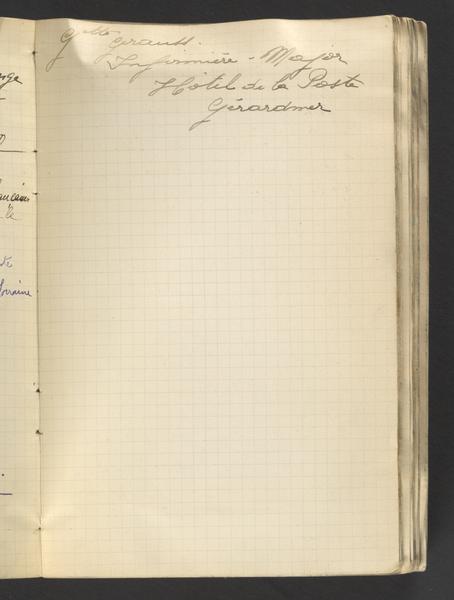 Gtte Grauss.
Infirmière - Major
Hôtel de la Poste
Gérardmer